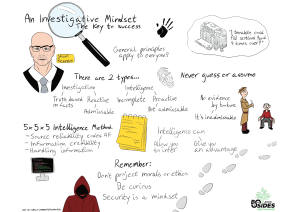 An Investigative Mindset
The Key to success
General principles
apply to everyone!
There are 2 types...
Investigation
Intelligence
Truth based
on facts
Reactive
Admissable
Incomplete
Proactive
Not admissable
Never guess or assume
No evidence
by torture
It's inadmissable
5x5x5 Intelligence Method
- Source reliability codes AF
- Information credibility
- Handling information
Intelligence can
Allow you
to infer
Give you
an advantage
Remember:
Don't project morals or ethics
Be curious
Security is a mindset
BSIDES